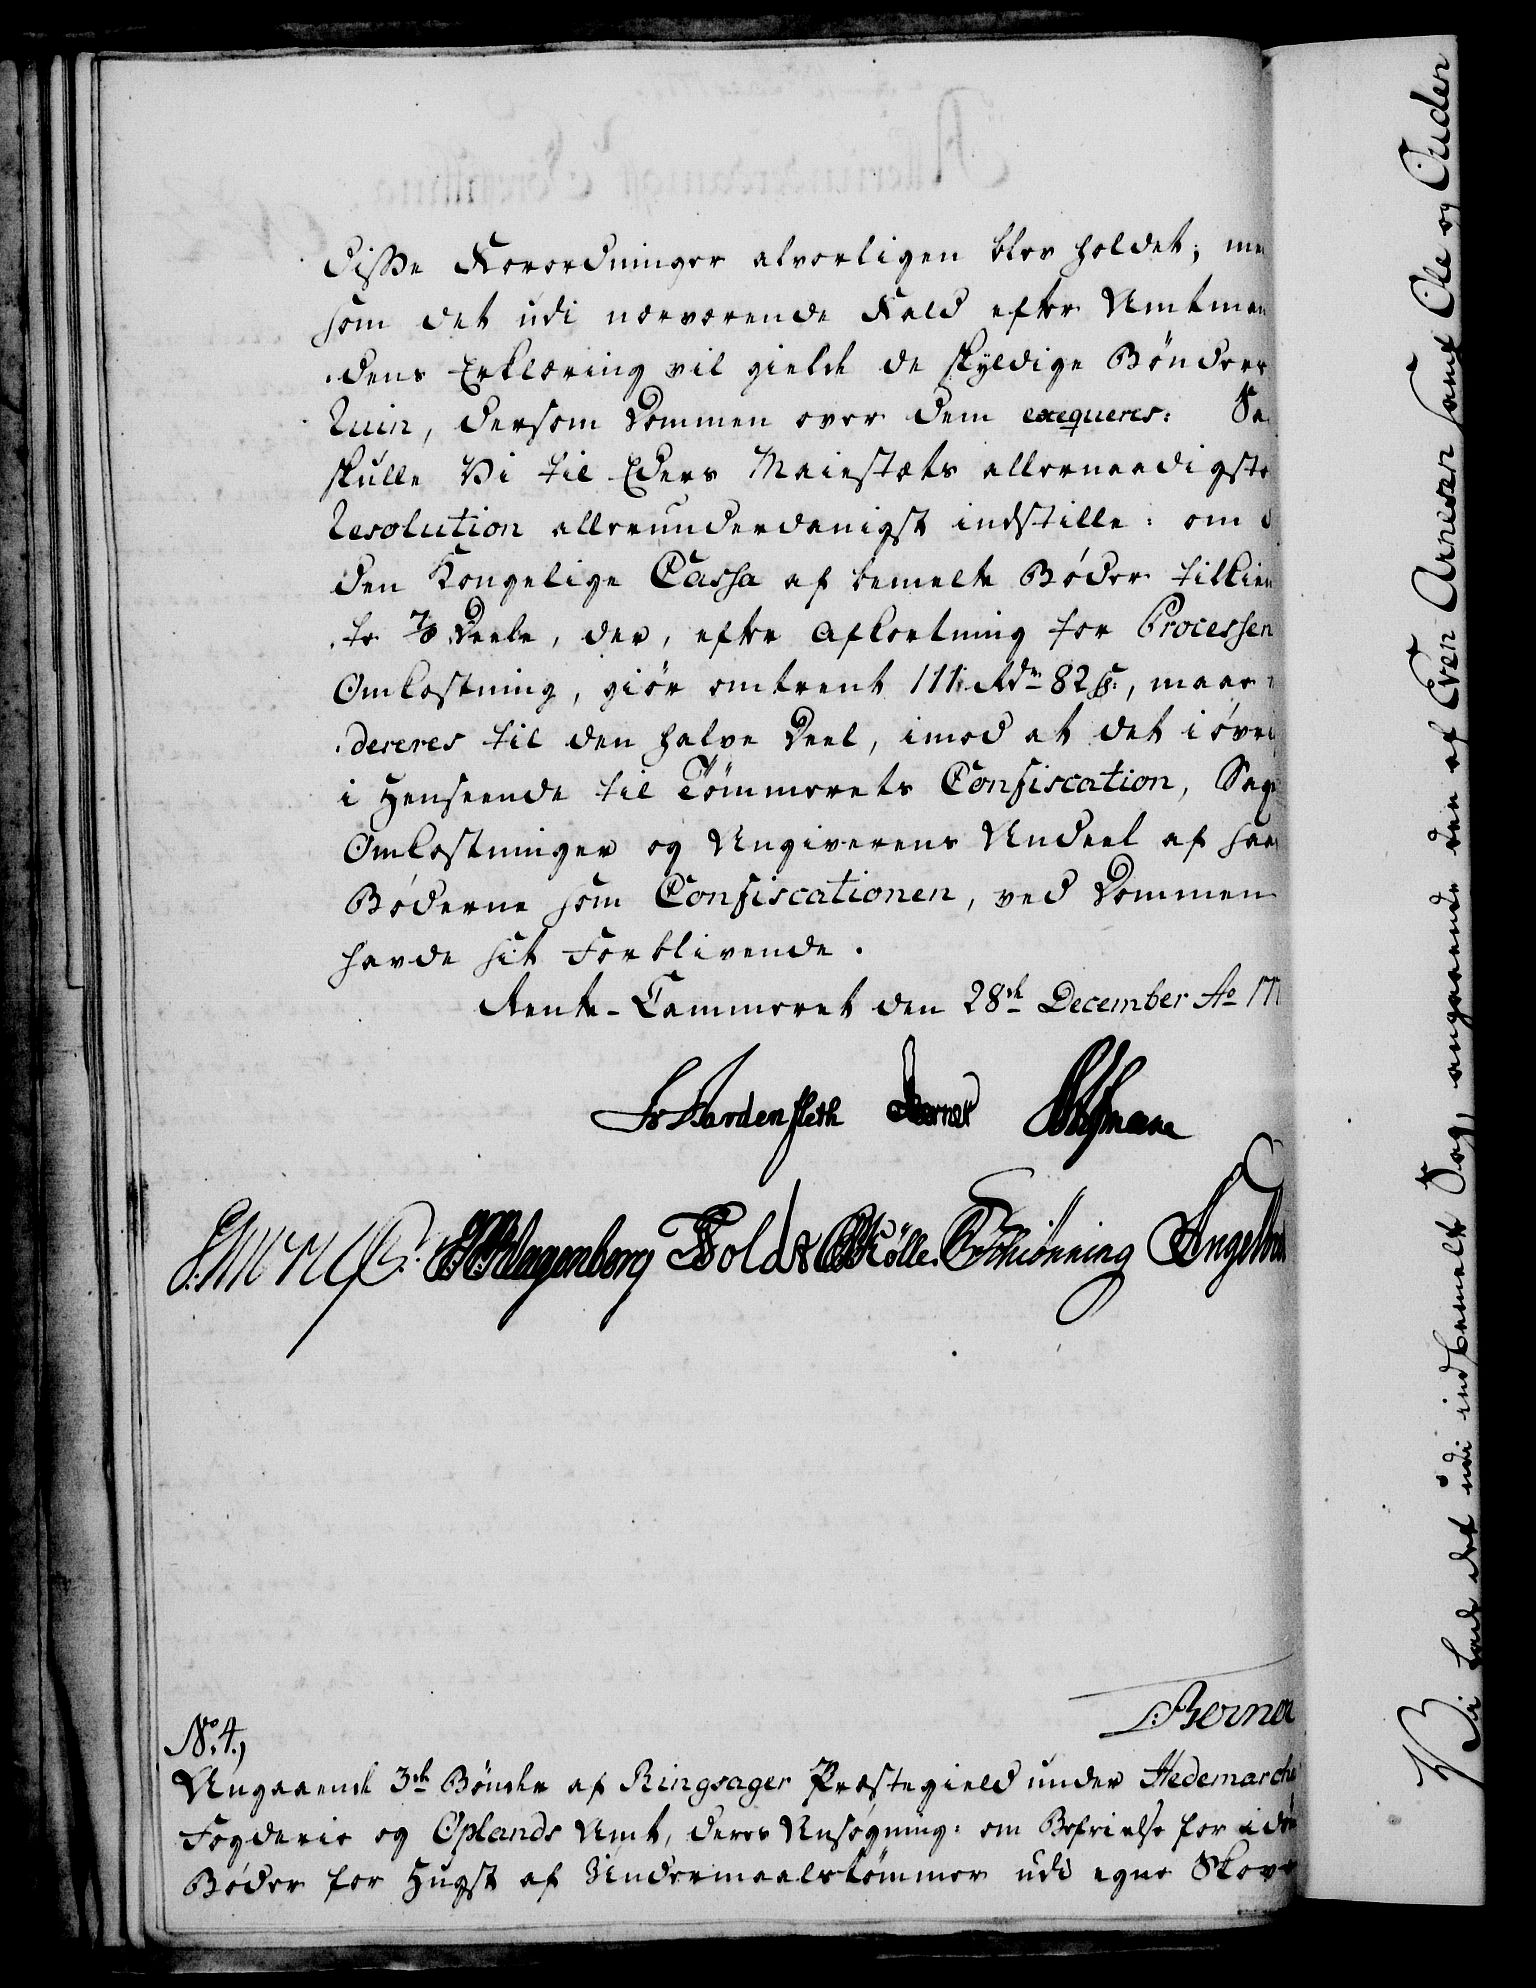 disse Forordninger alvorligen blev holdet; me
som det udi nærværende Fald efter Amtman
dens Erklæring vil gielde de skyldige Bønders
Ruin, dersom Dommen over dem exequeres: Sa
skulle Vi til Eders Maiestæts allernaadigste
Resolution allerunderdanigst indstille: om d
den Kongelige Cassa af bemelte Bøder tilkien
te 7/8 Deele, der, efter Afkortning for Processen
Omkostning, giør omtrent 111 Rdr 82 ß:, maae
dereres til den halve Deel, imod at det i øvri
i Henseende til Tømmerets Confiscation, Sag
Omkostninger og Angiverens Andeel af saa
Bøderne som Confiscationen, ved Dommen
havde sit Forblivende.
Rente-Cammeret den 28de December Ao 177
Fr Hardenfleth Berner
Klagenberg Toldr Kølle Schiönning Engelbr
Berner
No. 4.,
Angaaende 3de Bønder af Ringsager Præstegield under Hedemarche
Fogderie og Oplands Amt, deres Ansøgning: om Befrielse for idøm
Bøder for Hugst af Undermaalstømmer udi egne Skove
Vi lade det udi indbemelt Sag, angaaende den af Even Arnesen samt Ole og Auden